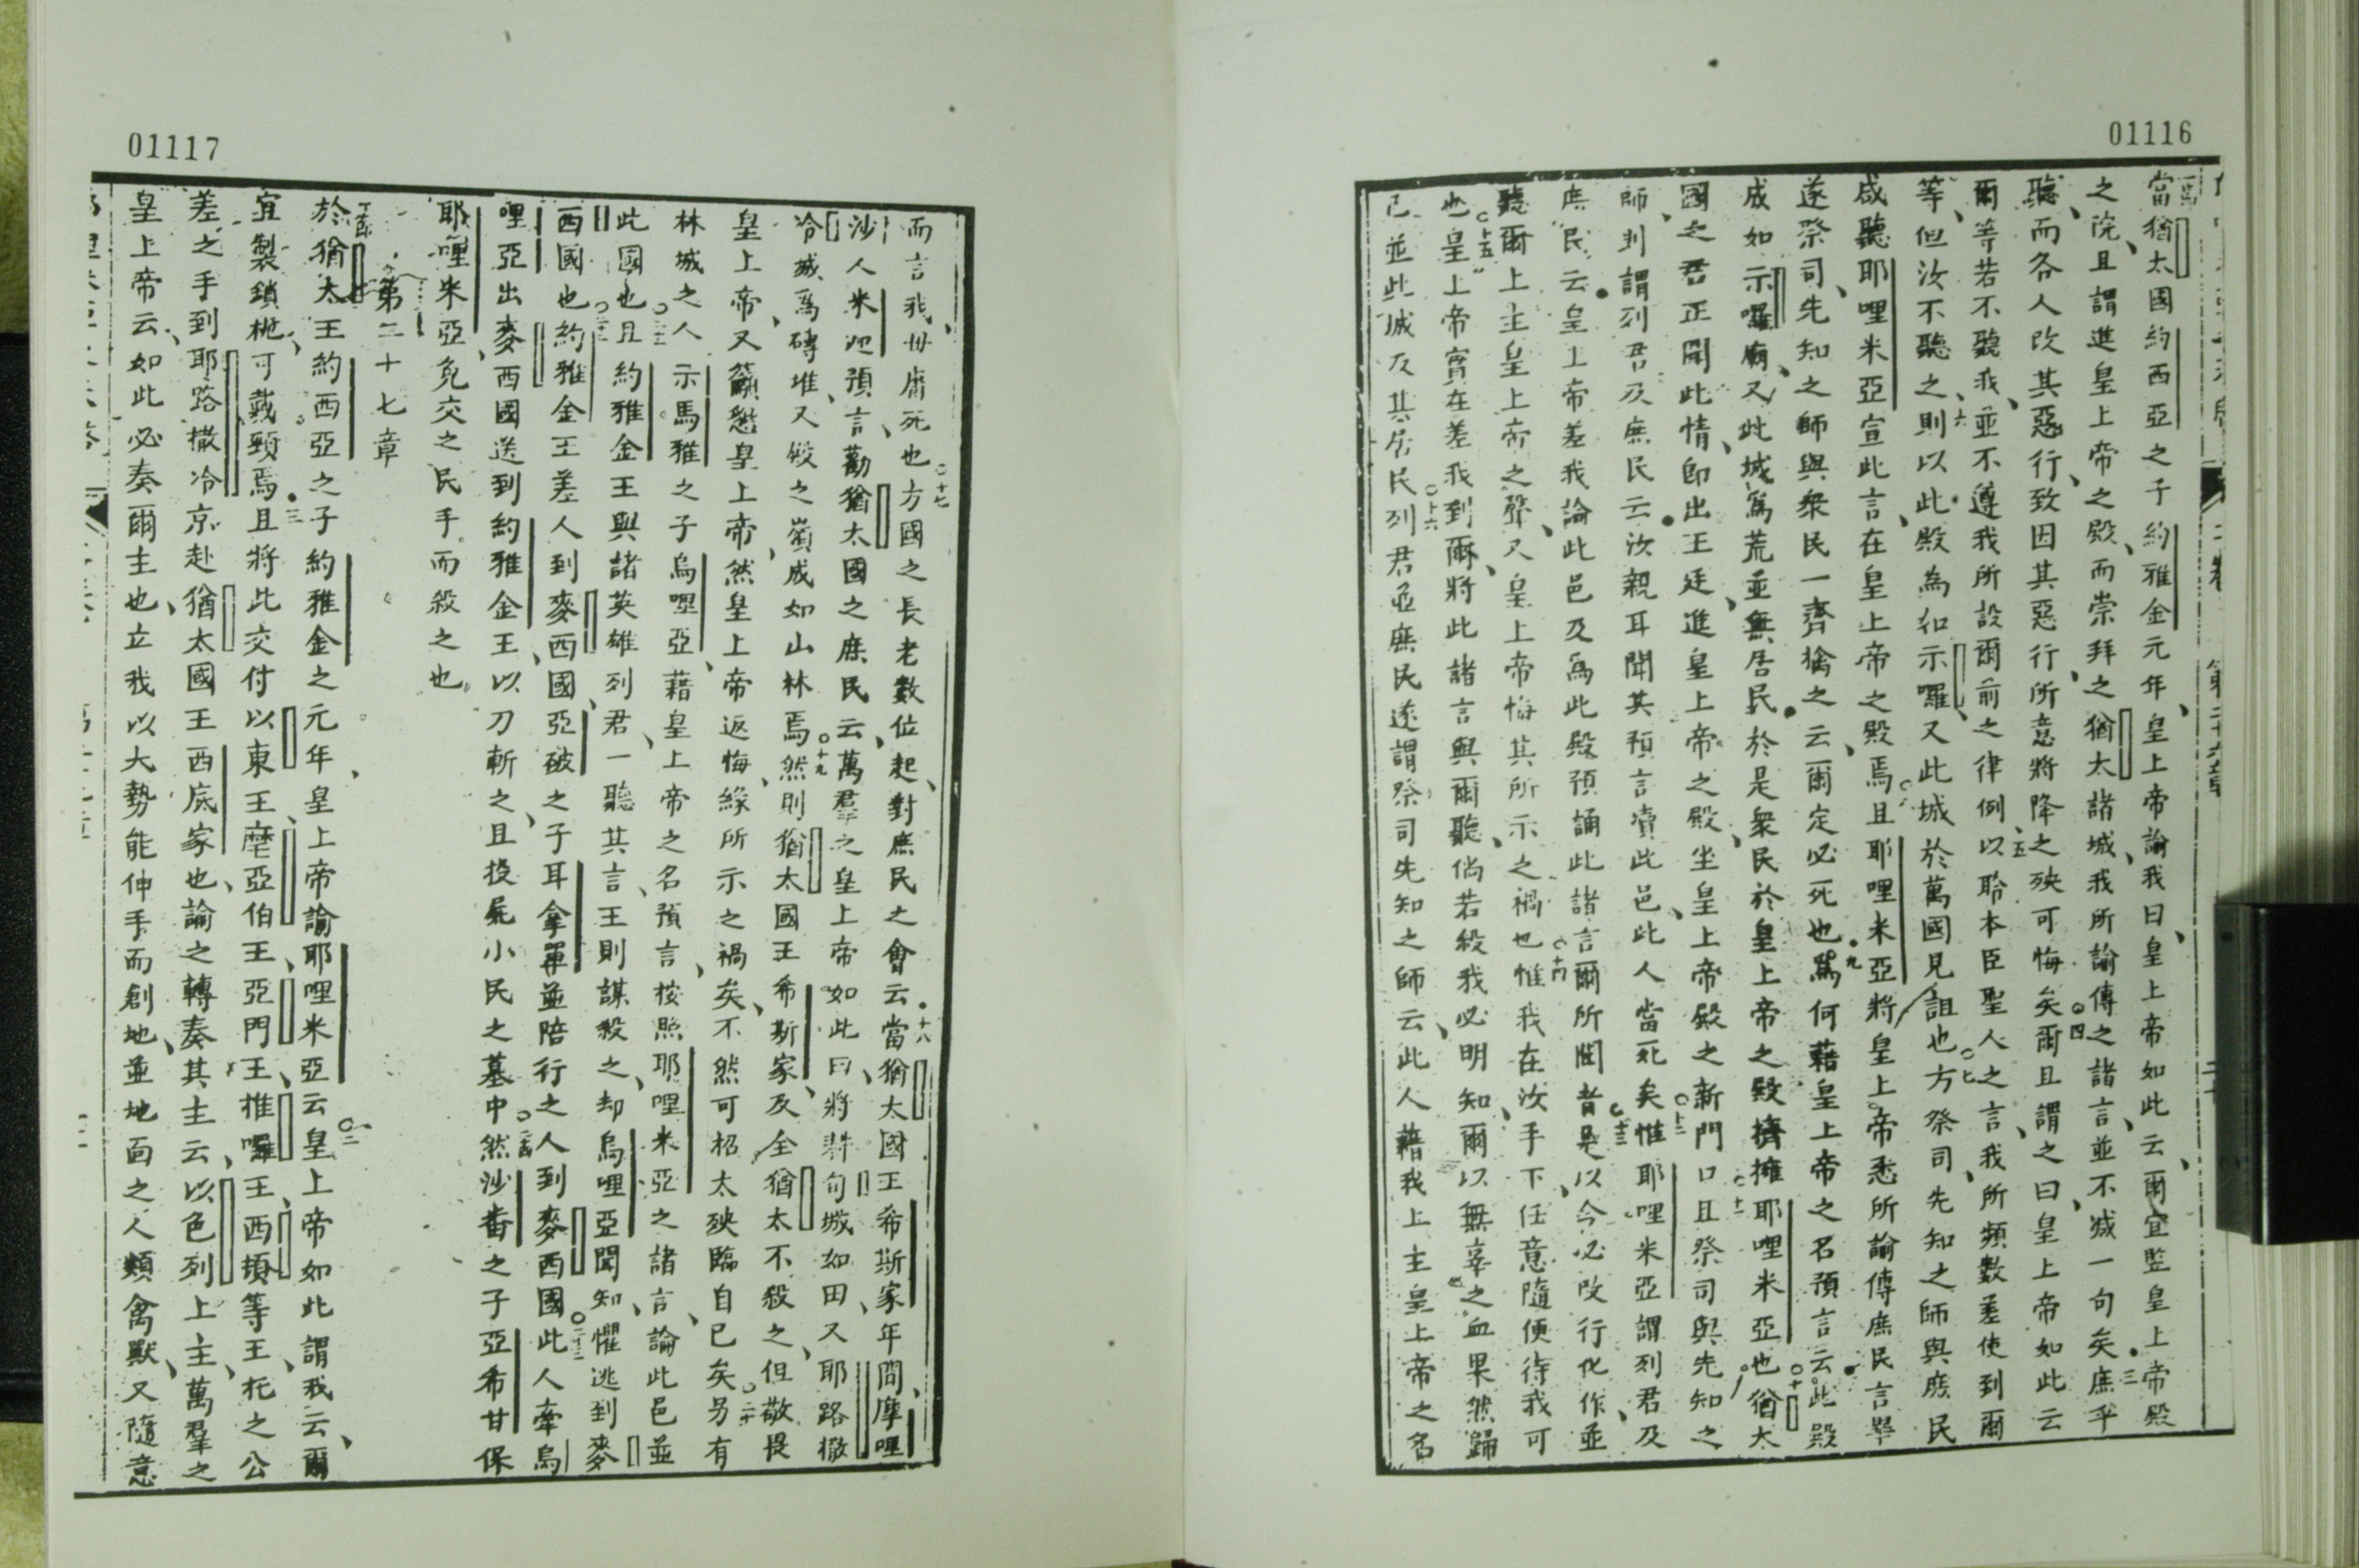 01116
當猶太國約西亞之子約雅金元年皇上帝諭我曰皇上帝如此云爾宜監皇上帝殿
之院且謂進皇上帝之殿而崇拜之猶太諸城我所諭傳之諸言並不減一句矣庶乎
聽而各人改其惡行致因其惡行所意將降之殃可悔矣爾且謂之曰皇上帝如此云
爾等若不聽我並不遵我所設爾前之律例以聆本臣聖人之言我所頻數差使到爾
等但汝不聽之則以此殿為如示囉又此城於萬國見詛也方祭司先知之師與庶民
咸聽耶哩米亞宣此言在皇上帝之殿焉且耶哩米亞將皇上帝悉所諭傳庶民言畢
遂祭司先知之師與衆民一齊擒之云爾定必死也爲何藉皇上帝之名預言云此殿
成如示囉廟又此城爲荒並無居民於是衆民於皇上帝之殿擠擁耶哩米亞也猶太
國之君正聞此情卽出王廷進皇上帝之殿坐皇上帝殿之新門口且祭司與先知之
師判謂列君及庶民云汝親耳聞其預言凟此邑此人當死矣惟耶哩米亞謂列君及
庶民云皇上帝差我論此邑及爲此殿預誦此諸言爾所聞者是以今必改行化作並
聽爾上主皇上帝之聲又皇上帝悔其所示之禍也惟我在汝手下任意隨便待我可
也皇上帝實在差我到爾將此諸言與爾聽倘若殺我必明知爾以無辜之血果然歸
己並此城及其居民列君並庶民遂謂祭司先知之師云此人藉我上主皇上帝之名
01117
而言我毋庸死也方國之長老數位起對庶民之會云當猶太國王希斯家年間摩哩
沙人米迦預言勸猶太國之庶民云萬羣之皇上帝如此曰將耕旬城如田又耶路撒
冷城爲磚堆又殿之嶺成如山林焉然則猶太國王希斯家及全猶太不殺之但敬畏
皇上帝又籲懇皇上帝然皇上帝返悔緣所示之禍矣不然可招太殃臨自己矣另有
林城之人示馬雅之子烏哩亞藉皇上帝之名預言按照耶哩米亞之諸言論此邑並
此國也且約雅金王與諸英雄列君一聽其言王則謀殺之却烏哩亞聞知懼逃到麥
西國也約雅金王差人到麥西國亞破之子耳拿單並陪行之人到麥西國此人牽烏
哩亞出麥西國送到約雅金王以刀斬之且投屍小民之墓中然沙番之子亞希甘保
耶哩米亞免交之民手而殺之也
第二十七章
於猶太王約西亞之子約雅金之元年皇上帝諭耶哩米亞云皇上帝如此謂我云爾
宜製鎖杝可戴頸焉且將此交付以東王摩亞伯王亞門王推囉王西頓等王托之公
差之手到耶路撒冷京赴猶太國王西底家也諭之轉奏其主云以色列上主萬羣之
皇上帝云如此必奏爾主也立我以大勢能伸手而創地並地面之人類禽獸又隨意